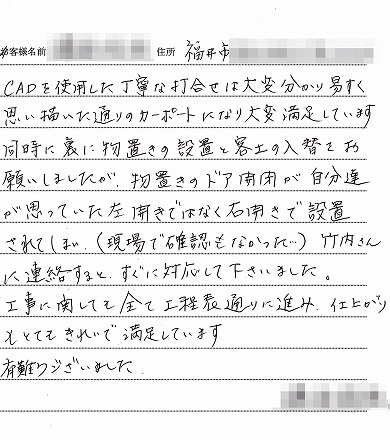 お客様名前 住所 福井市
CADを使用した丁寧な打合せは大変分かり易すく
思い描いた通りのカーポートになり大変満足しています
同時に裏に物置きの設置と客土の入替をお
願いしましたが、物置きのドア開閉が自分達
が思っていた左開きではなく右開きで設置
されてしまい、(現場で確認もなかった…)竹内さん
に連絡すると、すぐに対応して下さいました。
工事に関しても全て工程表通りに進み、仕上がり
もとてもきれいで満足しています
有難うございました.